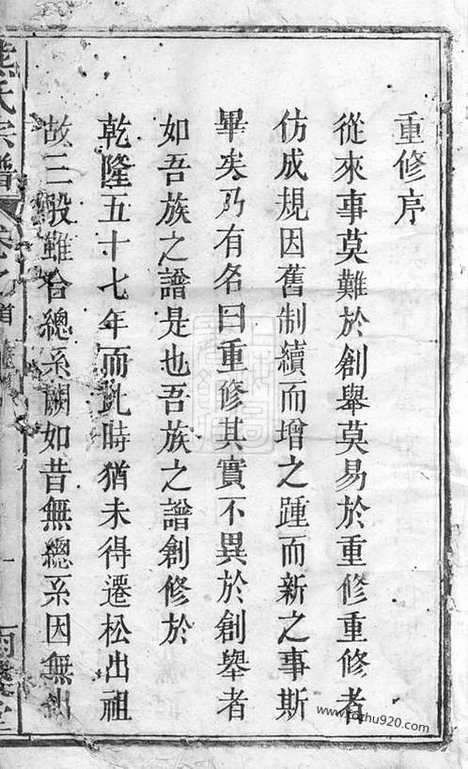 重修序
從來事莫難於創舉莫易於重修重修者
仿成規因舊制續而增之踵而新之事斯
畢矣乃有名曰重修其實不異於創舉者
如吾族之譜是也吾族之譜創修於
乾隆五十七年而此時猶未得遷松出祖
故三股雖合總系闕如昔無總系因無出
氏宗譜
卷之首
一
堂
www.tozhu920.com